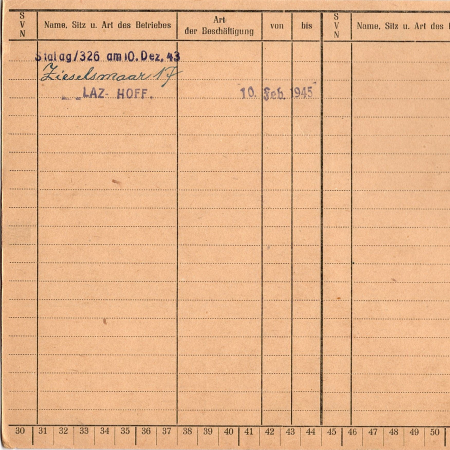 S V N Name, Sitz u. Art des Betriebes Art der Beschäftigung von bis S V N Name, Sitz u. Art des
Stalag/326 am 10. Dez. 43
Zieselsmaar 17
LAZ- HOFF. 10. Feb. 1945
30 31 32 33 34 35 36 37 38 39 40 41 42 43 44 45 46 47 48 49 50